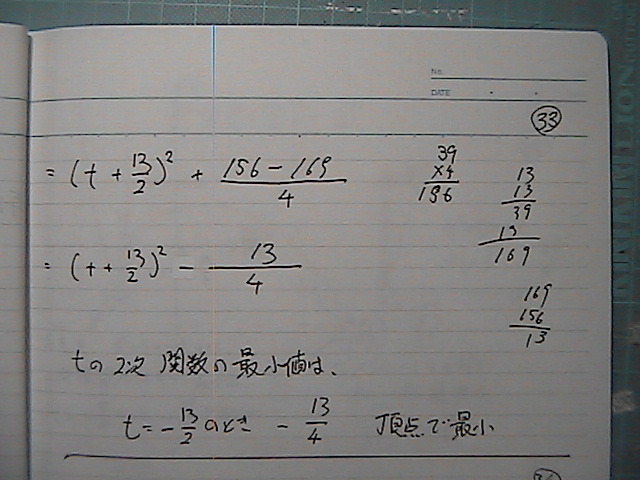 No.
DATE
33
= (t + 13/2)² + (156 - 169)/4
39
×4
156
13
13
39
13
169
= (t + 13/2)² - 13/4
169
156
13
tの2次関数の最小値は、
t = -13/2 のとき -13/4 頂点で最小